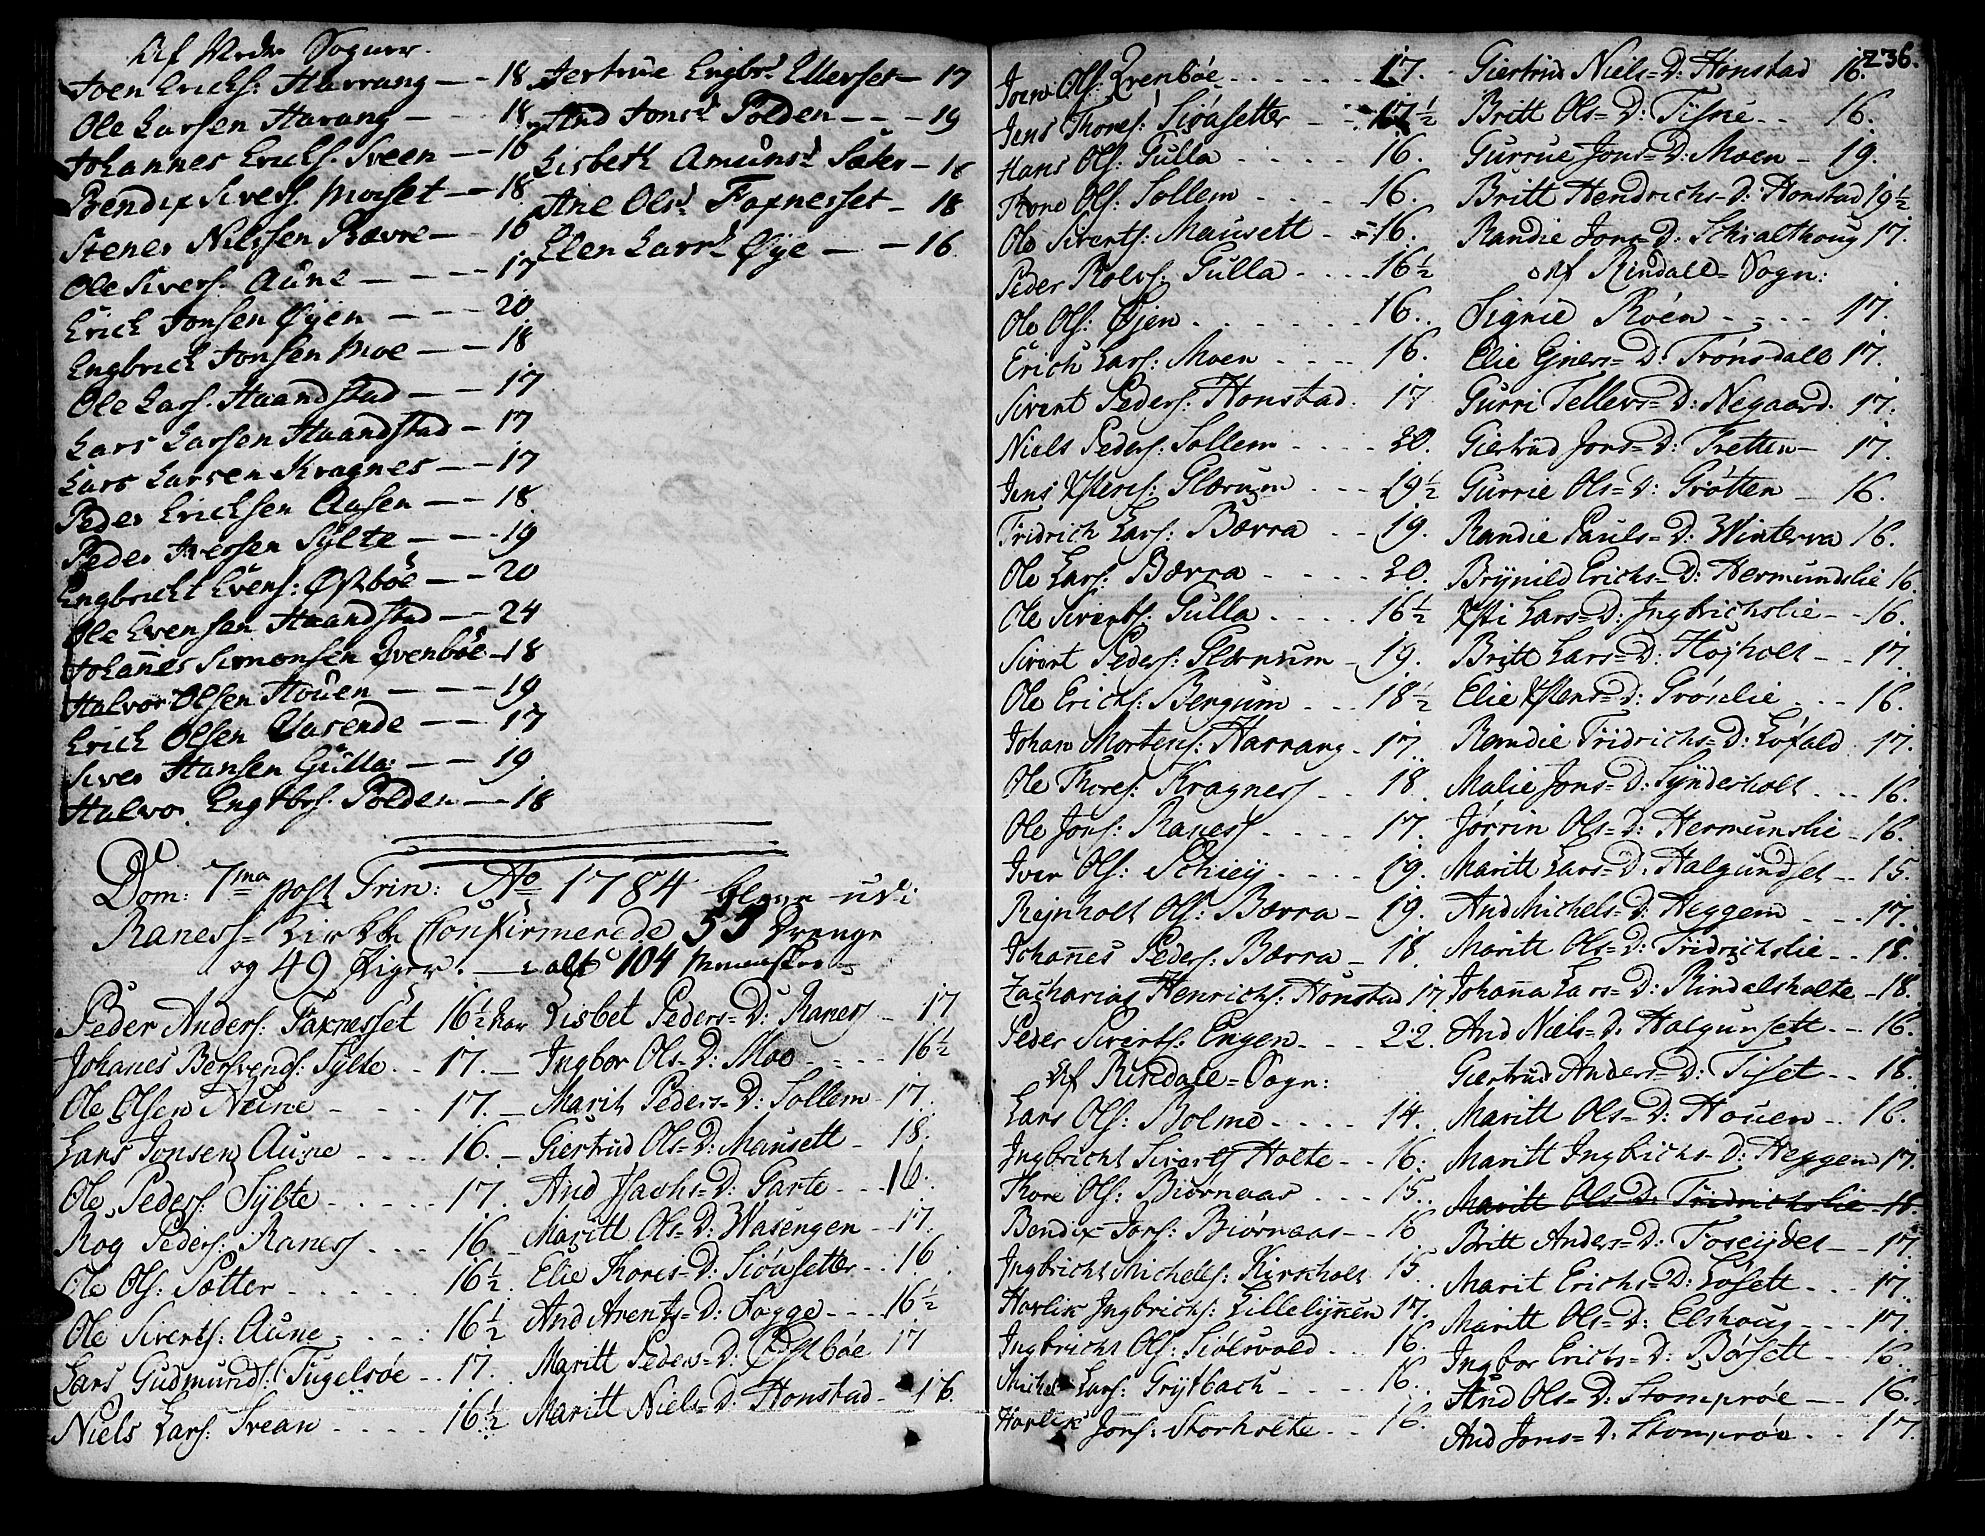 Af Nedr Sogner.
Joen Erichs: Harrang — 18
Ole Larsen Harang — 18
Johannes Erichs. Sveen — 16
Bendix Sivers. Moset — 18
Stener Nilssen Bævre — 16
Ole Sivers. Aune — 17
Erich Jonsen Øyen — 20
Engbrick Jonsen Moe — 18
Ole Lars. Haandstad — 17
Lars Larsen Haandstad — 17
Lars Larsen Kragnes — 17
Peder Ericksen Aasen — 18
Peder Iversen Sylte — 19
Engbricht Evens: Østbøe — 20
Ole Evensen Haandstad — 24
Johañes Simonsen Qvenbøe — 18
Halvor Olsen Houen — 19
Erick Olsen Aasende — 17
Siver Hansen Gulla — 19
Halvor Engebrs. Polden — 18
Jertrue Engbrd Ellerset — 17
And Jonsd Polden — 19
Lisbeth Amunsd Sæter — 18
Ane Olsd Foxnesset — 18
Elen Larsd Øye — 16
Dom: 7ma post Trin: Ao 1784 blev udi
Raness Kirke Confirmerede 55 Drenge
og 49 Piger. — ialt 104 Mennisker
Peder Anders: Faxnesset 16½ Aar
Johanes Bersvends: Sylte 17.
Ole Olsen Aune 17.
Lars Jonsen Aune 16.
Ole Peders. Sylte 17.
Rog Peders: Raness 16
Ole Ols: Sætter 16½
Ole Siverts: Aune 16½
Lars Gudmunds: Fugelsøe 17.
Niels Lars: Svean 16½
Lisbet Peders=D: Raness 17
Ingbor Ols=D: Moe 16½
Marit Peders=D: Sollem 17.
Giertrud Ols=D: Mausett 18.
And Isachs=D: Garte 16.
Maritt Ols=D: Wasengen 17.
Elie Thores=D: Siøasetter 16
And Arents=D: Fagge 16½
Maritt Peders=D: Østbøe 17
Maritt Niels=D: Honstad 16.
236.
Joen Ols: Qvenbøe 17.
Jens Thores: Siøasetter 17½
Hans Ols: Gulla 16.
Thore Ols: Sollem 16.
Ole Siverts: Mausett 16.
Peder Rolvs: Gulla 16½
Ole Ols: Øjen 16.
Erich Lars: Moen 16.
Sivert Peders: Honstad 17
Niels Peders: Sollem 20.
Jens Estens: Glærum 19½
Fridrich Lars: Bærra 19.
Ole Lars: Bærra 20.
Ole Siverts: Gulla 16½
Sivert Peders: Glærum 19.
Ole Erichs: Bergum 18½
Johan Mortens: Harrang 17.
Ole Thores: Kragness 18.
Ole Jons: Raness 17.
Iver Ols: Schiey 19.
Rejnholt Ols: Bærra 19.
Johañes Peders: Bærra 18.
Zacharias Henrichs: Honstad 17
Peder Siverts: Engen 22.
Af Rindale=Sogn:
Lars Ols: Bolme 14.
Ingbricht Siverts Holte 16.
Thore Ols: Biørnaas 15.
Bendix Jons: Biørnaas 16
Ingbricht Michels: Kirscholt 15
Harlik Ingbrichs: Lillelÿkken 17.
Ingbricht Ols: Siølsvold 16.
Michel Lars: Grÿtbach 16.
Harlik Jons: Storholte 16.
Giertrud Niels=D: Honstad 16.
Britt Ols=D: Tisne 16.
Gurrue Jons=D: Moen 19.
Britt Hendrichs=D: Honstad 19½
Randie Jons=D: Schralthoug 17.
Af Rindale=Sogn:
Signie Røen 17.
Elie Ejners=D: Trønsdale 17.
Gurri Tellevs=D: Negaard 17.
Giertrud Jons=D: Tretten 17.
Gurrie Ols=D: Grøtten 16.
Randie Pauls=D: Winterva 16.
Brÿnild Erichs=D: Hermundslie 16
Esti Lars=D: Ingbrichslie 16.
Britt Lars=D: Højholt 17.
Elie Estens=D: Grøselie 16.
Randie Fridrichs=D: Løfald 17.
Malie Jons=D: Sÿnderholt 16.
Jørrin Ols=D: Hermunslie 16.
Maritt Lars=D: Halgundset 15.
And Michels=D: Heggem 17.
Maritt Ols=D: Fridrichslie 18.
Johaña Lars=D: Rindalsholte 18.
And Niels=D: Halgunsett 16.
Giertrud Anders=D: Tiset 18.
Maritt Ols=D: Houen 16.
Maritt Ingbrichs=D: Heggem 17.
Maritt Ols=D: Fridrichslie 18.
Britt Anders=D: Foseÿdet 17.
Marit Erichs=D: Løsett 17.
Maritt Ols=D: Elshoug 17.
Ingbor Erichs=D: Børsett 16.
And Ols=D: Stomprøe 16.
And Jons=D: Stomprøe 17.